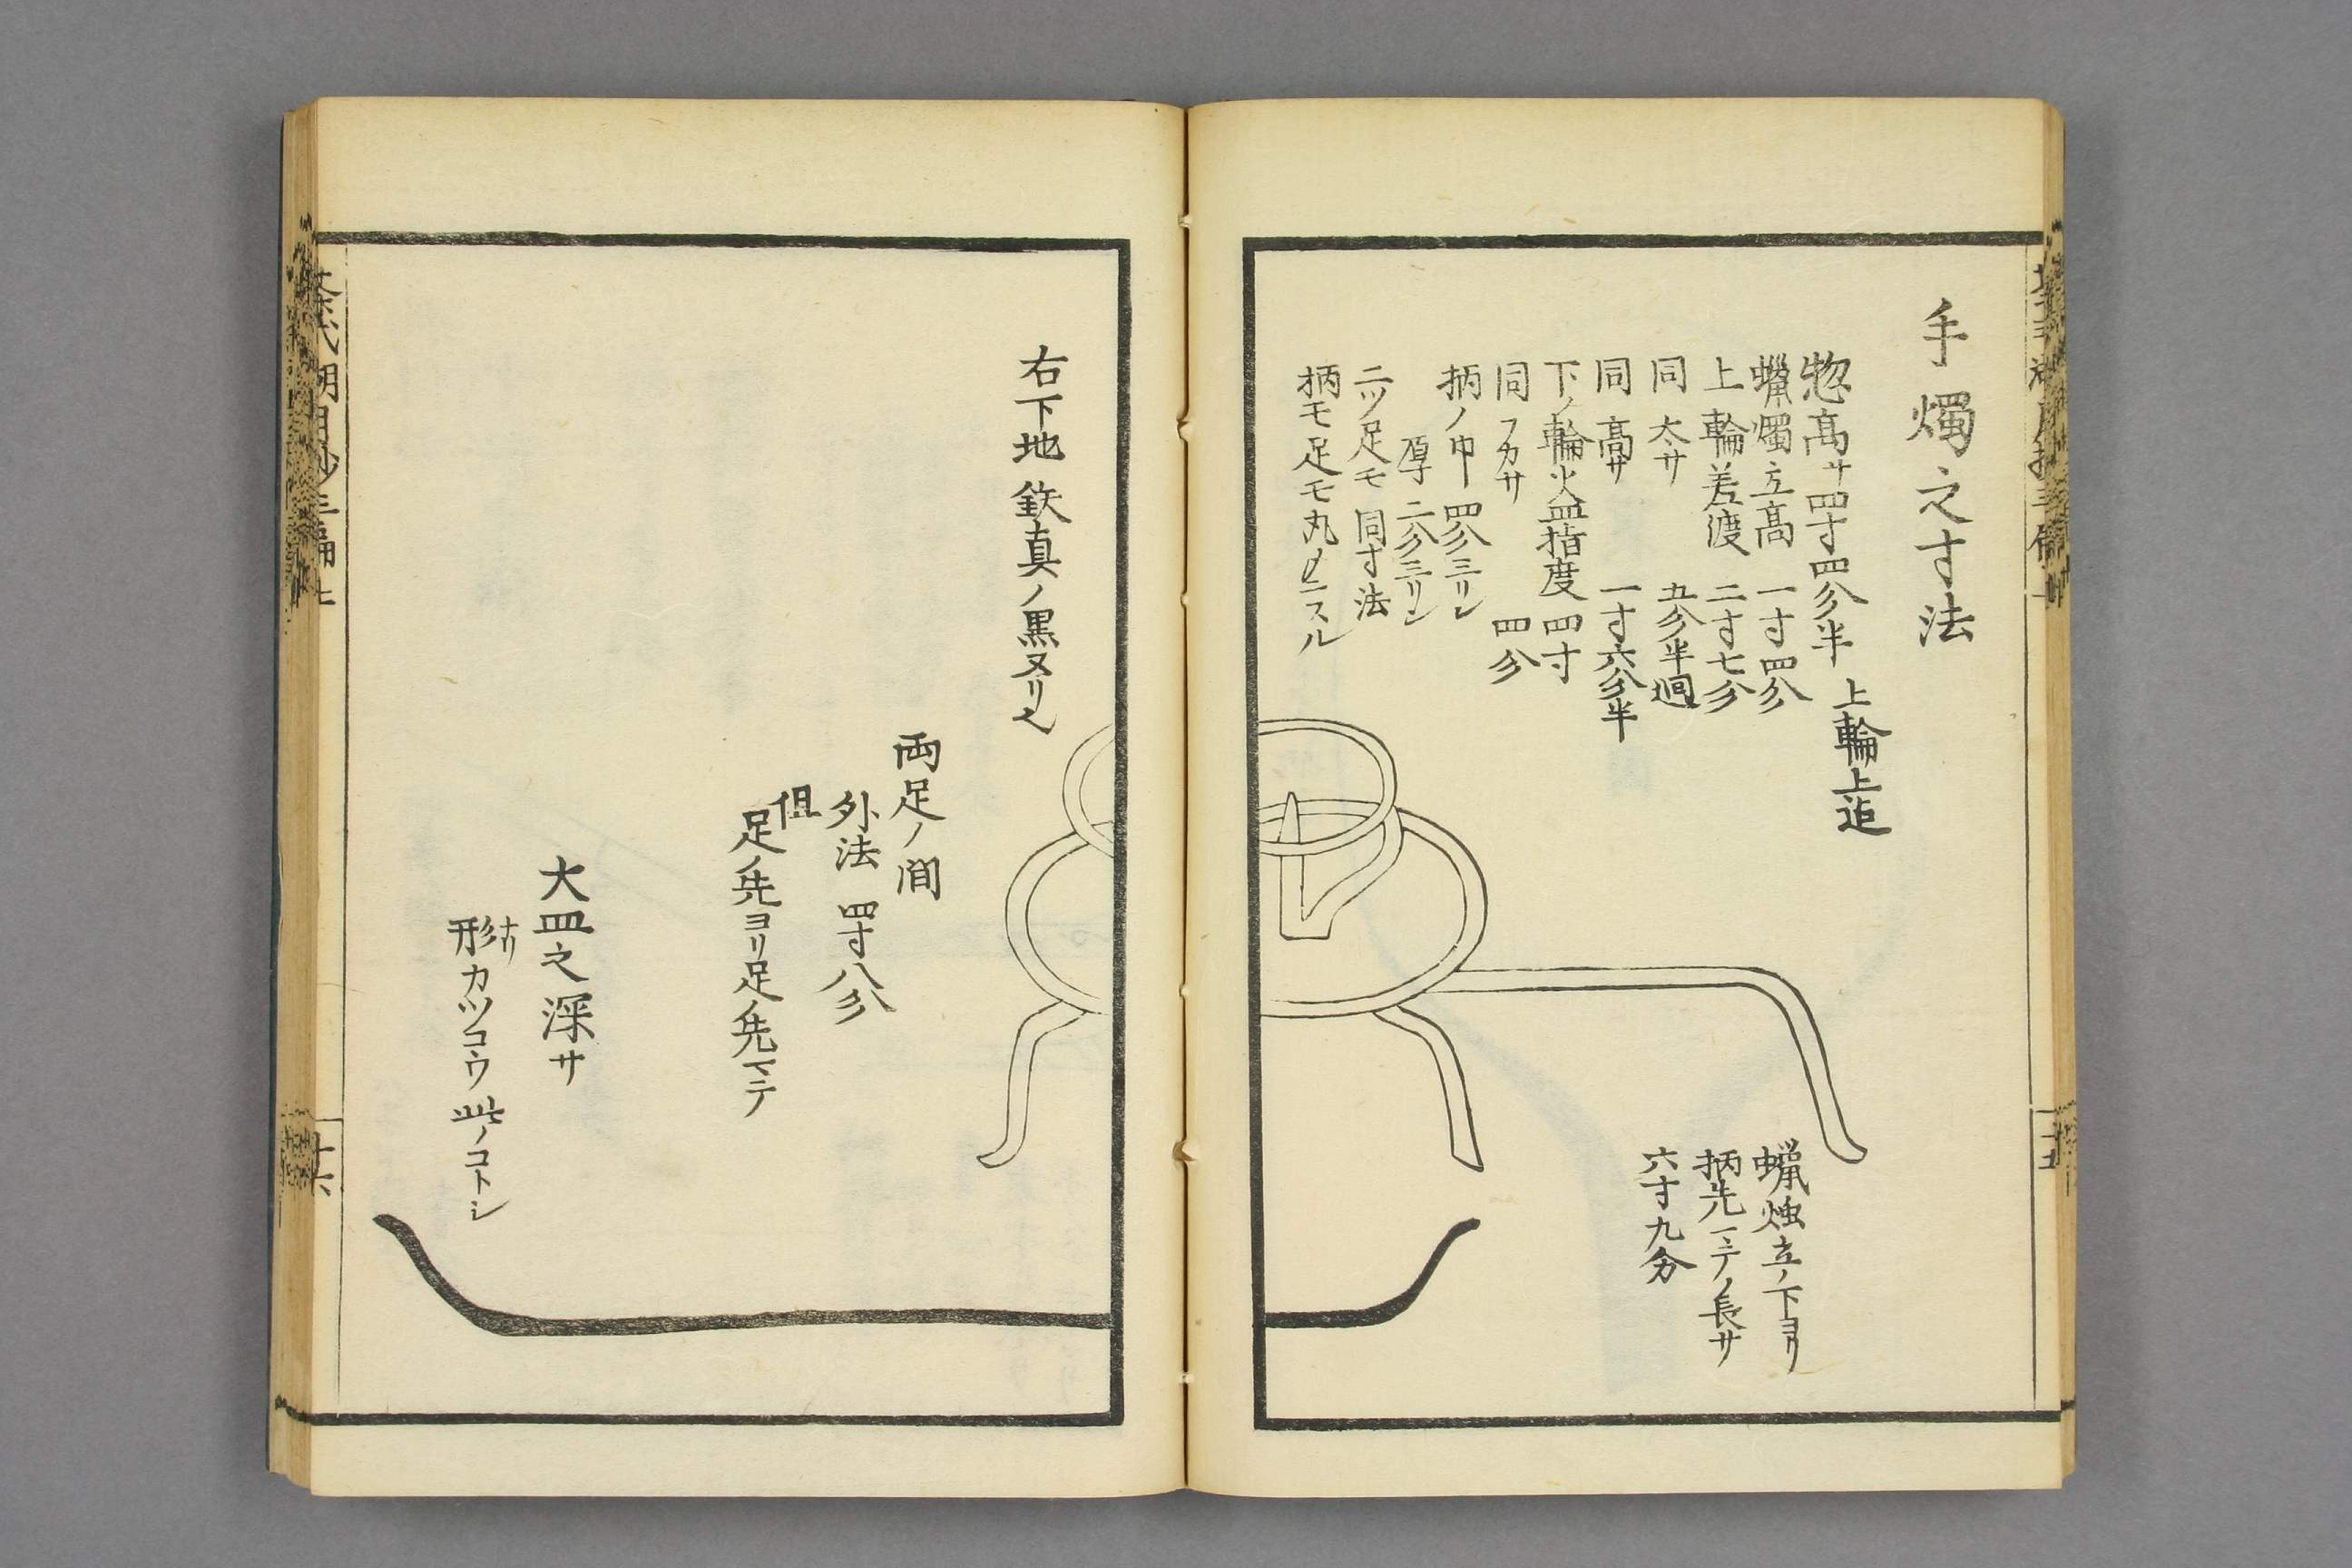 手燭之寸法
惣高サ四寸四分半 上輪上迄
蝋燭立高 一寸四分
上輪差渡 二寸七分
同 大サ 五分半廻
同 高サ 一寸六分半
下ノ輪火皿指度 四寸
同 フカサ 四分
柄ノ巾 四分三リン
厚 二分三リン
二ツ足モ同寸法
柄モ足モ丸メニスル
蝋燭立ノ下ヨリ
柄先マテノ長サ
六寸九分
右下地 鉄真ノ黒ヌリ也
両足ノ間
外法 四寸八分
但
足ノ先ヨリ足ノ先マテ
大皿之深サ
形ナリカツコウ此ノコトシ
十六